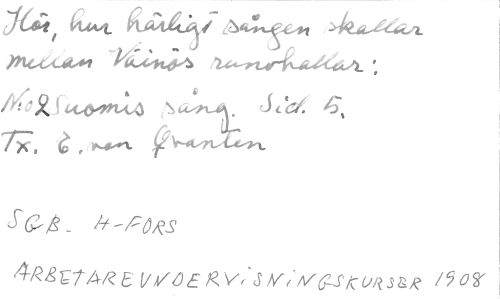 Hör, hur härligt sången skallar
mellan Väinös runohallar:
N:o 2 Suomis sång. Sid. 5.
Tx. E. von Qvanten
SGB. H-FORS
ARBETAREUNDERViSNiNGSKURSER 1908